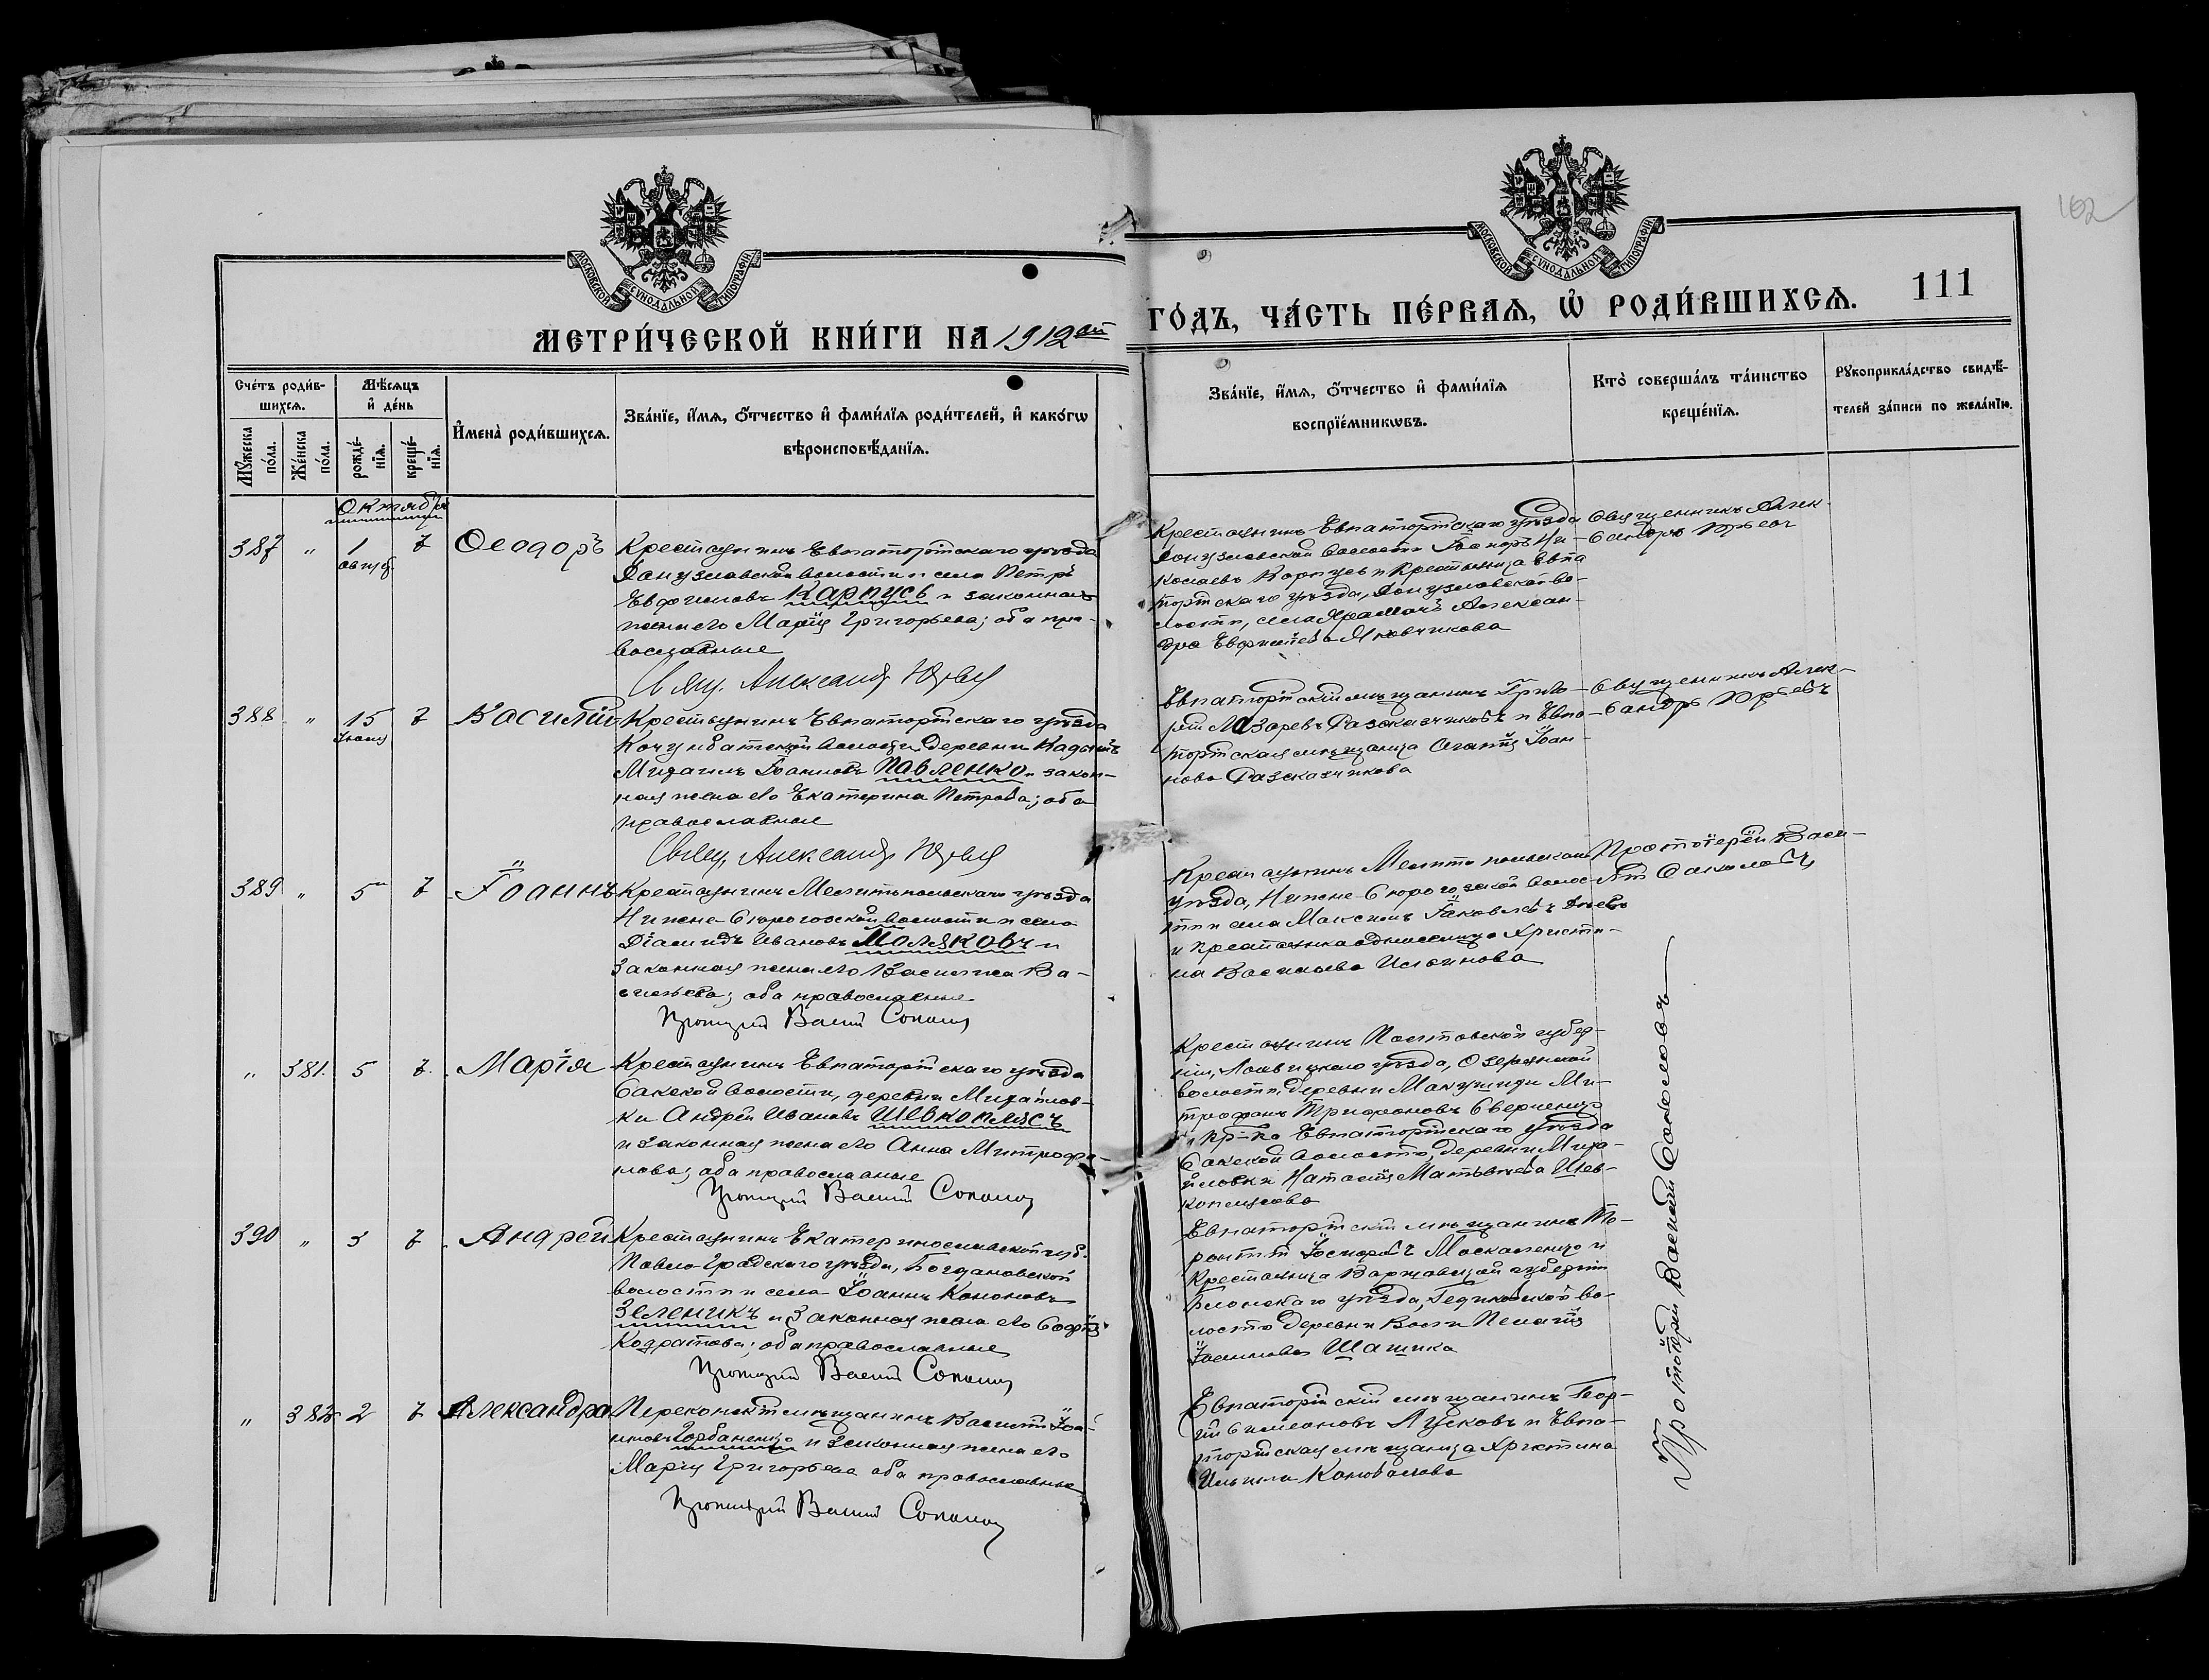 162
МОСКОВСКОЙ СѴНОДАЛЬНОЙ ТИПОГРАФІИ
МОСКОВСКОЙ СѴНОДАЛЬНОЙ ТИПОГРАФІИ
МЕТРИ́ЧЕСКОЙ КНИ́ГИ НА 1912ый
ГО́ДЪ, ЧА́СТЬ ПЕ́РВАѦ, Ѡ҆ РОДИ́ВШИХСѦ. 111
Счётъ роди́в-
шихсѧ.
Мꙋ́жеска по́ла.
Же́нска по́ла.
Мѣ́сѧцъ
и҆ де́нь
рожде́-
нїѧ.
креще́-
нїѧ.
И҆мена̀ роди́вшихсѧ.
Зва́нїе, и҆́мѧ, ѻ҆́тчество и҆ фами́лїѧ роди́телей, и҆ како́гѡ
вѣроисповѣ́данїѧ.
Зва́нїе, и҆́мѧ, ѻ҆́тчество и҆ фами́лїѧ
воспрїе́мникѡвъ.
Кто̀ соверша́лъ та́инство
креще́нїѧ.
Рꙋкоприкла́дство свидѣ́-
телей за́писи по жела́нїю.
Октября
387 " 1 7 Ѳеодоръ
август
Крестьянинъ Евпаторійскаго уѣзда
Донузлавской волости и села Петръ
Евфимовъ Карпусь и законная
жена его Марія Григорьева; оба пра-
вославные
Свящ. Александр Юрьев
Крестьянинъ Евпаторійскаго уѣзда
Донузлавской волости Ни-
колаевъ Карпусь и Крестьянка Евпа
торійскаго уѣзда, Донузлавской во-
лости, села Александ-
дра Евфиміева
Священникъ Алек-
сандръ Юрьевъ
388 " 15 7 Василій
Іюня
Крестьянинъ Евпаторійскаго уѣзда
волости, деревни
Михаилъ Іоанновъ Павленко и закон-
ная жена его Екатерина Петрова; оба
православные
Свящ. Александр Юрьев
Евпаторійскій мѣщанинъ Григо-
рій Лазаревъ Разсказчиковъ и Евпа-
торійская мѣщанка Агафія Іоан-
нова Разсказчикова
Священникъ Алек-
сандръ Юрьевъ
389 " 5 7 Іоаннъ
Крестьянинъ Мелитопольскаго уѣзда
Нижне-Сѣрогозской волости и села
Діомидъ Ивановъ Поляковъ и
законная жена его Василиса Ва-
сильева; оба православные
Протоіерей Василій Соколов
Крестьянинъ Мелитопольскаго
уѣзда, Нижне-Сѣрогозской волос-
ти и села Максимъ Іаковлевъ
и крестьянка односелица Христи-
на Васильева
Протоіерей Васи-
лій Соколовъ
" 381. 5 7. Марія
Крестьянинъ Евпаторійскаго уѣзда
Сакской волости, деревни Михайлов-
ки Андрей Ивановъ Шевкоплясъ
и законная жена его Анна Митрофа-
нова; оба православные
Протоіерей Василій Соколов
Крестьянинъ Полтавской губер-
ніи, Лохвицкаго уѣзда, Озерянской
волости, деревни Ми-
трофанъ Трифоновъ
и кр-ка Евпаторійскаго уѣзда
Сакской волости, деревни Миха-
йловки Наталія Матвѣева Шев-
коплясова
390 " 3 7 Андрей
Крестьянинъ Екатеринославской губ.
Павлоградскаго уѣзда, Богдановской
волости и села Іоаннъ Кононовъ
Зеленикъ и законная жена его Софія
Кодратова; оба православные
Протоіерей Василій Соколов
Евпаторійскій мѣщанинъ Те-
рентій Іосифовъ Москаленко и
Крестьянка Варшавской губерніи
Блонскаго уѣзда, во-
лости деревни Пелагія
Шашика
" 382 2 7 Александра
Перекопскій мѣщанинъ Василій Іоа-
нновъ Горбаненко и законная жена его
Марія Григорьева оба православные
Протоіерей Василій Соколов
Евпаторійскій мѣщанинъ Геор-
гій Симеоновъ Лусковъ и Евпа-
торійская мѣщанка Христина
Ильина Коновалова
Протоіерей Василій Соколовъ